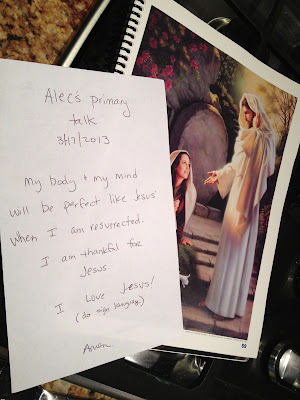 Alec's primary
talk
3/17/2013
My body + my mind
will be perfect like Jesus'
when I am resurrected.
I am thankful for
Jesus.
I love Jesus!
(do sign language)
Amen.